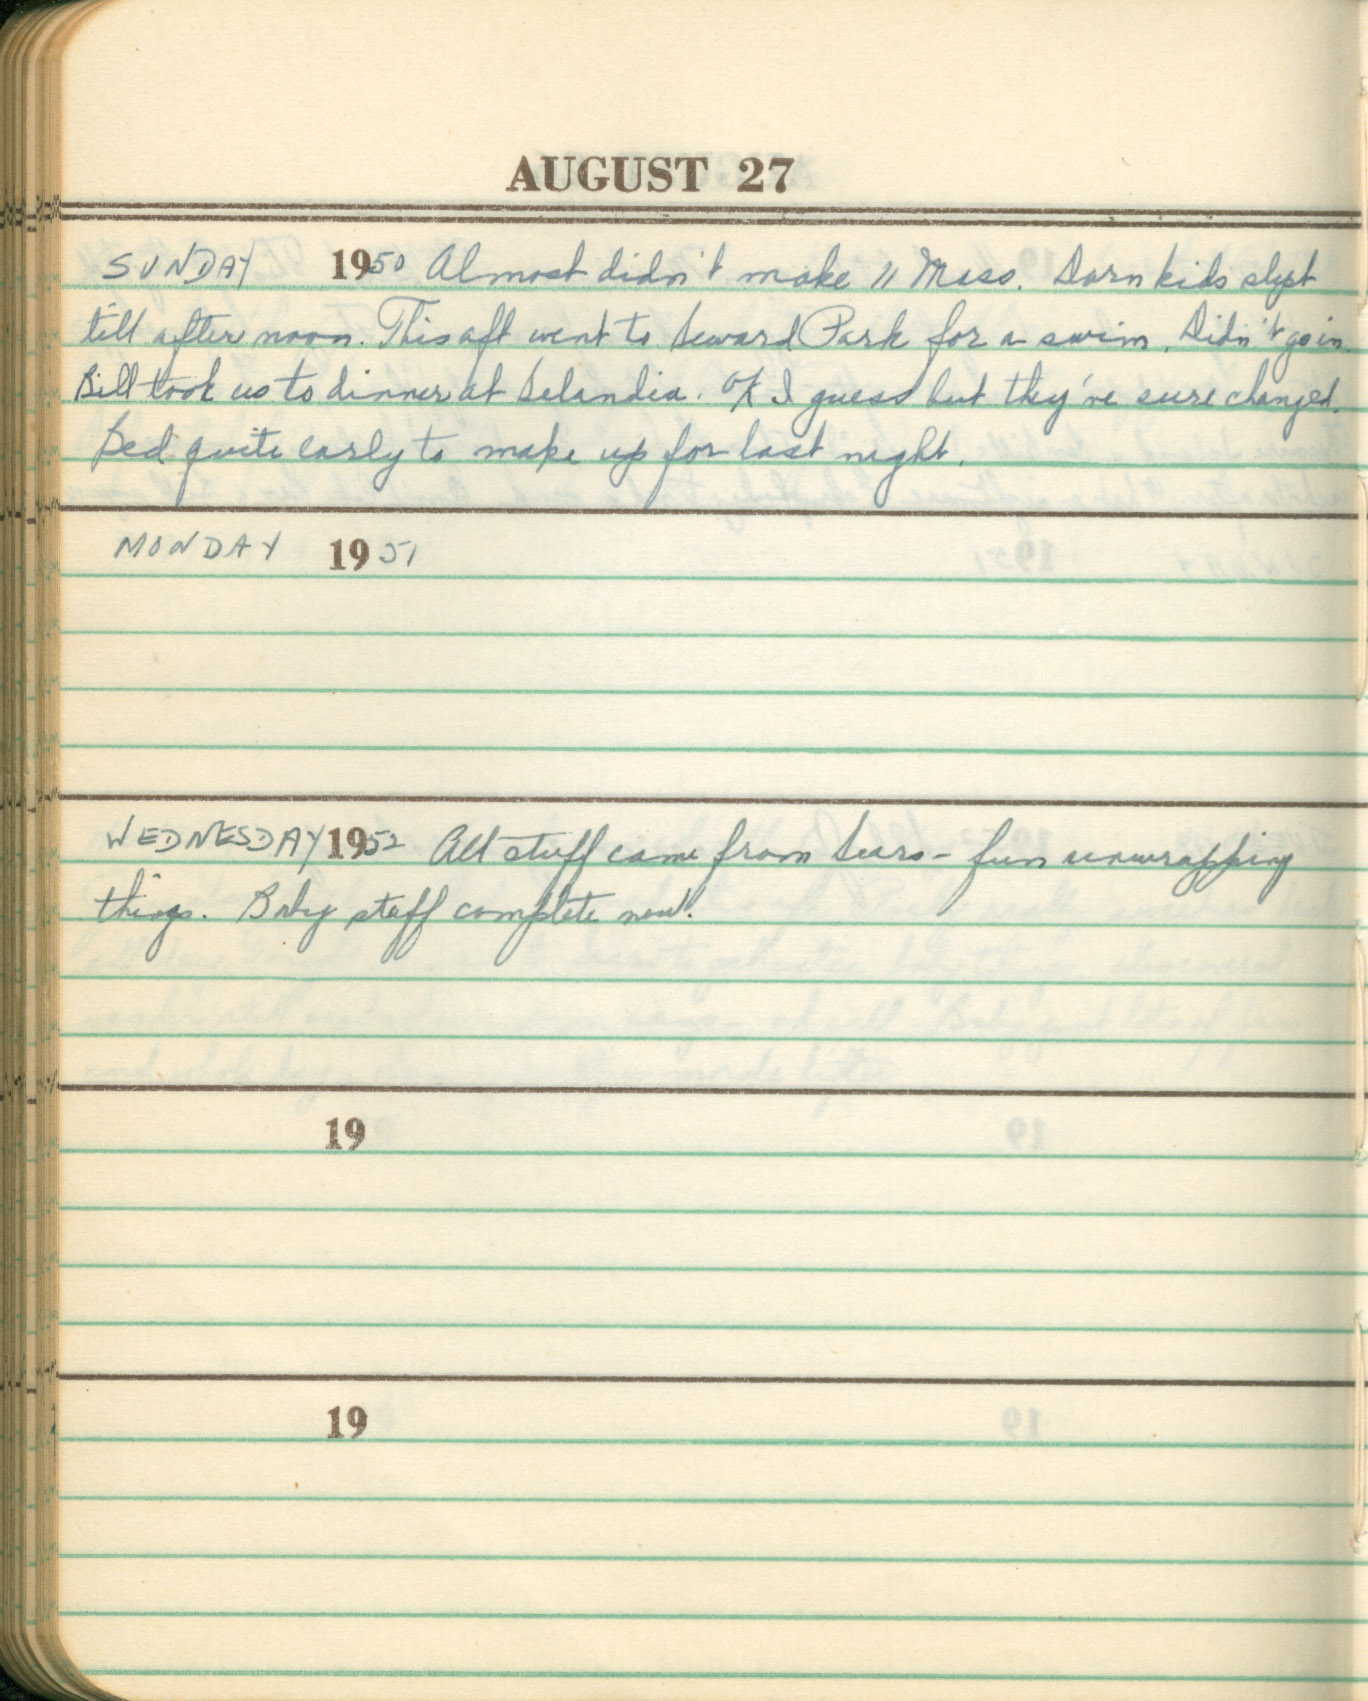 AUGUST 27
SUNDAY 1950 Almost didn't make 11 Mass. Darn kids slept
till after noon. This aft went to Seward Park for a swim. Didn't go in.
Bill took us to dinner at Selandia. OK I guess but they've sure changed.
Bed quite early to make up for last night.
MONDAY 1951
WEDNESDAY 1952 All stuff came from Sears - fun unwrapping
things. Baby stuff complete now.
19
19